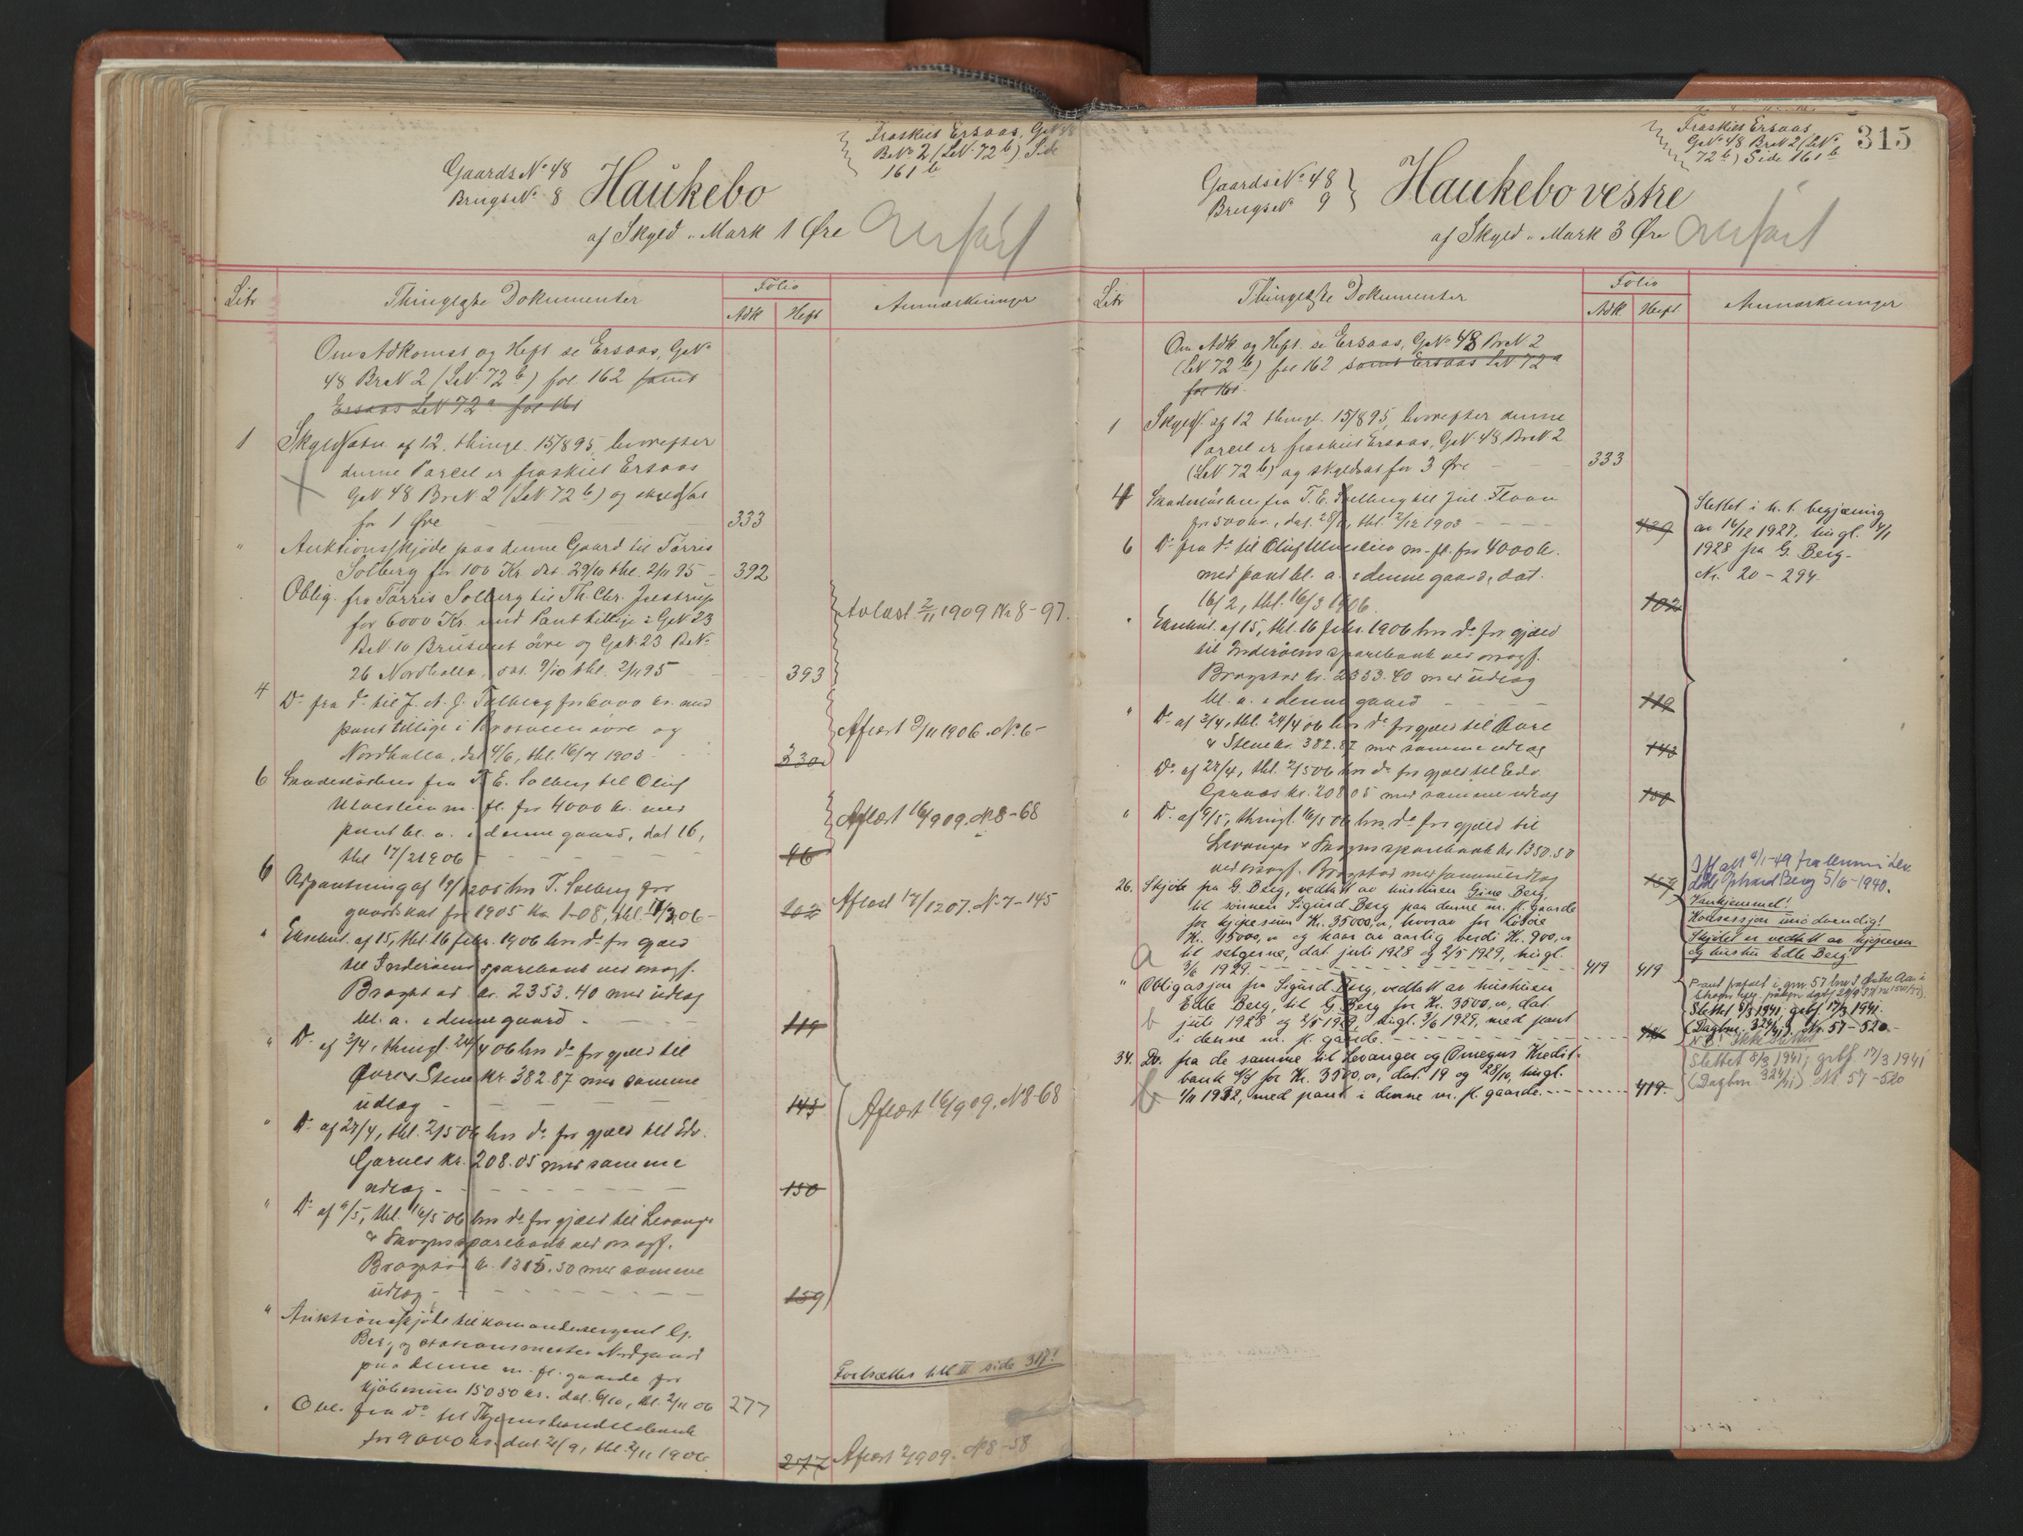 Fraskilt Ersaas, GaN 48
BrNo 2 (LeN. 72 b) Side
161 b
Gaards No 48
Brugs No 8
Haukebo
af Skyld " Mark 1 Øre
Anført
Litr
Thinglyste Dokumenter
Folio
Adk
Heft
Anmærkninger
Om Adkomst og Heft se Ersaas, GaNo
48 BrN 2 (LeN. 72 b) fol. 162 samt
Ersaas LeN 72 a fol 161
1
af 12. thingl. 15/8 95, hvorefter
denne Parcel er fraskilt Ersaas
GaN 48 BrN 2 (LeN. 72 b) og skyldsat
for 1 Øre
333
" Auktionsskjøde paa denne Gaard til Torris
Solberg for 100 Kr. dat. 29/10 thl. 2/11 95
392
Oblig. fra Torris Solberg til Th. Chr. Jelstrup
for 6000 Kr. med Pant tillige i GaN 23
BrN. 10 øvre og GaN. 23 BrNo
26 Nordhalla, dat. 9/10 thl. 2/11 95
393
Avlæst 2/11 1909 No 8-97.
4 Do fra do til J. N. J. for 6000 kr. med
pant tillige i øvre og
Nordhalla, dat 4/6, thl. 16/7 1903
330
Aflæst 2/11 1906. No 6-
6 Skadesløsbrev fra T. E. Solberg til Oluf
m. fl. for 4000 kr. med
pant bl. a. i denne gaard, dat 16,
thl 17/2 1906
96
Aflæst 16/9 09. N 8-68
6 Udpantning af 19/12 05 hos T. Solberg for
gaardskat for 1905 kr. 1-08, thl. 1/3 06-
102
Aflæst 17/12 07. No 7-145
" Eksekut. af 15, thl. 16 febr. 1906 hos do for gjæld
til Inderøens sparebank ved ovsagf.
Bragstad kr. 2353.40 med udlæg
bl. a. i denne gaard
119
" Do af 3/4, thingl. 24/4 06 hos do for gjæld til
Øvre & Stene kr. 382.87 med samme
udlæg
143
" Do af 27/4, thl. 2/5 06 hos do for gjæld til Edv.
Garnes kr. 208.05 med samme
udlæg
150
Aflæst 16/9 09. N 8-68
" Do af 9/5, thl. 16/5 06 hos do for gjæld til Levanger
& Skogns sparebank ved ovsagf.
Bragstad kr. 1350.50 med samme
udlæg
159
" Auktionsskjøde til komandersergent G.
Berg og stationsmester Nordgaard
paa denne m. fl. gaarde for
kjøbesum 15050 kr. dat. 6/10, thl. 2/11 06
277
Fortsættes bl II side 317!
" Obl. fra do til
for 9000 kr. dat 21/9, thl. 2/11 1906
277
Aflæst 2/1 909. N 8-58
315
Fraskilt Ersaas,
GaNo 48 BrN 2 (LeNo
72 b) Side 161 b
Gaards No 48
Brugs No 9
Haukebo vestre
af Skyld " Mark 3 Øre
Anført
Litr
Thinglyste Dokumenter
Folio
Adk
Heft
Anmærkninger
Om Adk og Heft. se Ersaas, GaNo 48 BrN 2
(LeN 72 b) fol 162 samt Ersaas LeN 72 a
fol 161.
1 af 12 thingl. 15/8 95, hvorefter denne
Parcel er fraskilt Ersaas, GaN. 48 BrN. 2
(LeN 72 b) og skyldsat for 3 Øre
333
4 Skadesløsbrev fra T. E. Solberg til Jul. Floan
for 500 kr., dat. 28/11, thl. 2/12 1903
439
Slettet i h. t. begjæring
av 16/12 1927, tingl. 4/1
1928 fra G. Berg.
Nr. 20-294.
6 Do fra do til Oluf m. fl. for 4000 kr.
med pant bl. a. i denne gaard, dat.
16/2, thl. 16/3 1906.
102
" Eksekut. af 15, thl. 16 febr. 1906 hos do for gjæld
til Inderøens sparebank ved ovsagf.
Bragstad kr. 2353.40 med udlæg
bl. a. i denne gaard
119
" Do af 3/4, thl. 24/4 06 hos do for gjæld til Øvre
& Stene kr. 382.87 med samme udlæg
143
Do af 27/4, thl. 2/5 06 hos do for gjæld til Edv.
Garnes kr. 208.05 med samme udlæg
150
" Do af 9/5, thingl. 16/5 06 hos do for gjæld til
Levanger & Skogns sparebank kr. 1350.50
ved ovsagf. Bragstad med samme udlæg
159
26. Skjøte fra G. Berg, vedtatt av hustruen Gine Berg,
til sønnen Sigurd Berg paa denne m. fl. gaarde
for kjøpesum Kr. 35000,00, hvorav for løsøre
Kr. 9500,00 og kaar av aarlig verdi Kr. 900,00
til selgerne, dat juli 1928 og 2/5 1929, tingl.
a
3/6 1929.
419
419
5/6-1940.
Vanhjemmel!
Konsessjon unødvendig!
Skjøtet er vedtatt av kjøperen
og hustru Edle Berg!
" Obligasjon fra Sigurd Berg, vedtatt av hustruen
Edle Berg, til G. Berg for Kr. 3500,00, dat.
b
juli 1928 og 2/5 1929, tingl. 3/6 1929, med pant
i denne m. fl. gaarde.
Slettet 8/3 1941, grbf. 17/3 1941.
(Dagbnr. 324/41). Nr. 57-520.
34. Do. fra de samme til Levanger og Omegns Kredit-
bank A/S for Kr. 3500,00, dat. 19 og 28/10, tingl.
b
1/11 1932, med pant i denne m. fl. gaarde.
419
Slettet 8/3 1941, grbf. 17/3 1941
(Dagbnr 324/41). N 57-520